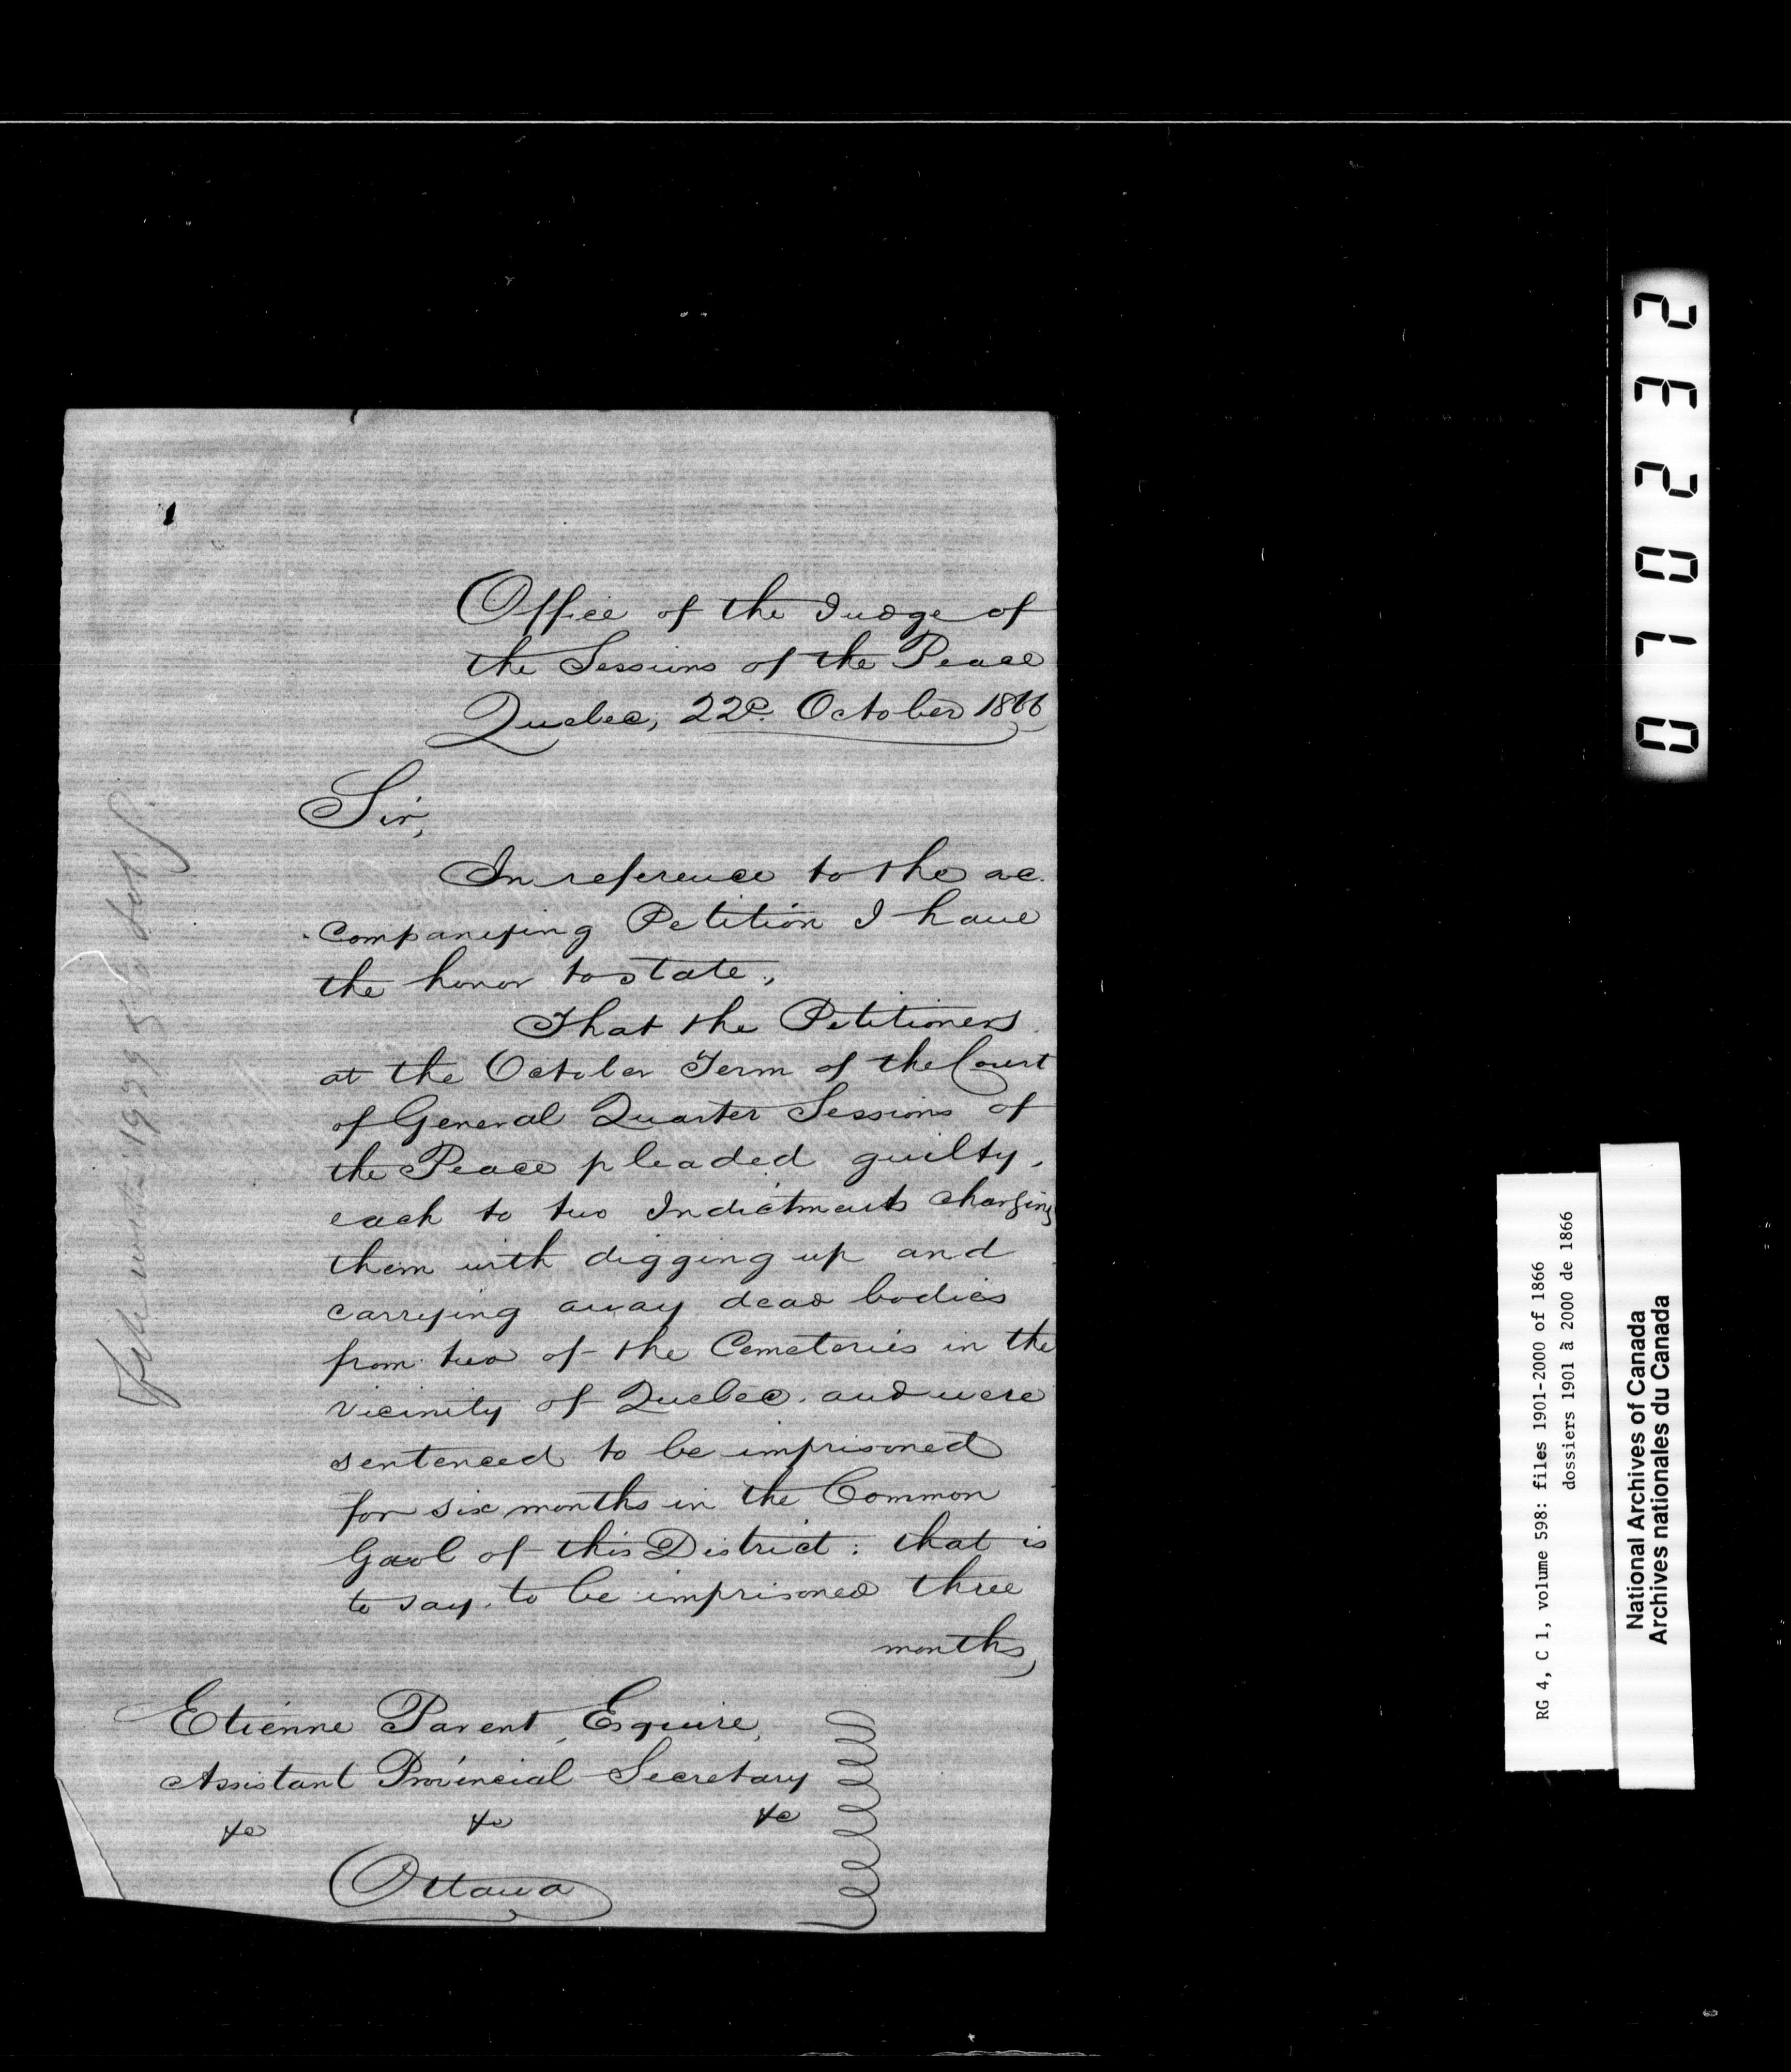 Office of the Judge of
the Sessions of the Peace
Quebec, 22d. October 1866
Sir,
In reference to the ac-
-companying Petition I have
the honor to state,
That the Petitioners
at the October Term of the Court
of General Quarter Sessions of
the Peace pleaded guilty,
each to two Indictments charging
them with digging up and
carrying away dead bodies
from two of the Cemeteries in the
vicinity of Quebec. and were
sentenced to be imprisoned
for six months in the Common
Gaol of this District: that is
to say, to be imprisoned three
months,
Etienne Parent, Esquire,
Assistant Provincial Secretary
&c &c &c
Ottawa
File with 1929
0 1 0 2 3 2
RG 4, C 1, volume 598: files 1901-2000 of 1866
dossiers 1901 à 2000 de 1866
National Archives of Canada
Archives nationales du Canada